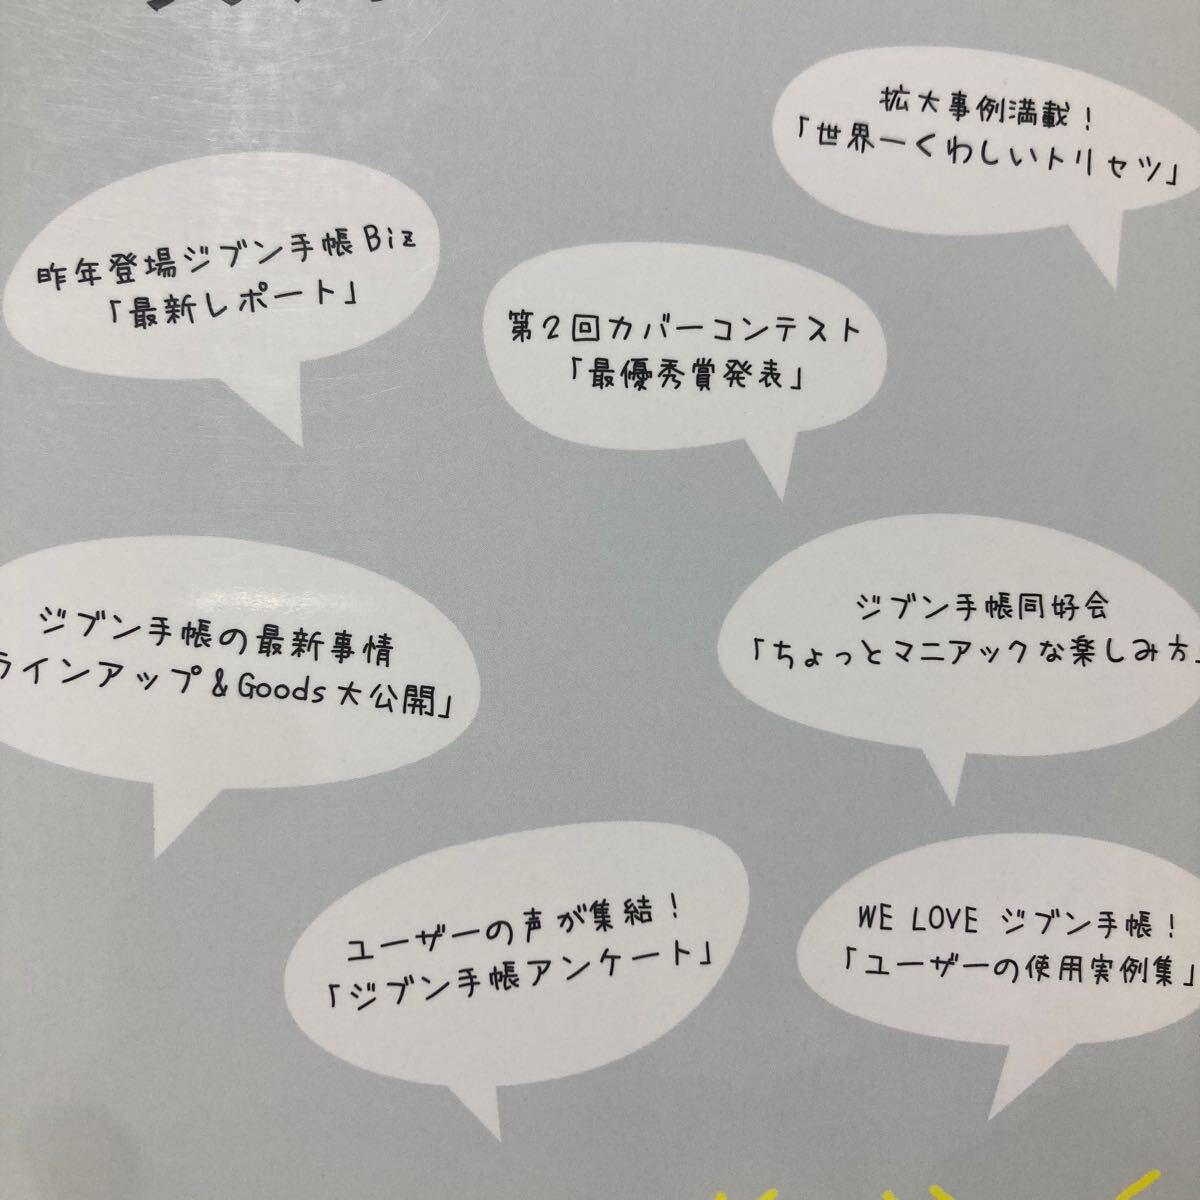 拡大事例満載!
「世界一くわしいトリセツ」
昨年登場ジブン手帳Biz
「最新レポート」
第2回カバーコンテスト
「最優秀賞発表」
ジブン手帳の最新事情
ラインアップ&Goods大公開」
ジブン手帳同好会
「ちょっとマニアックな楽しみ方」
ユーザーの声が集結!
「ジブン手帳アンケート」
WE LOVE ジブン手帳!
「ユーザーの使用実例集」